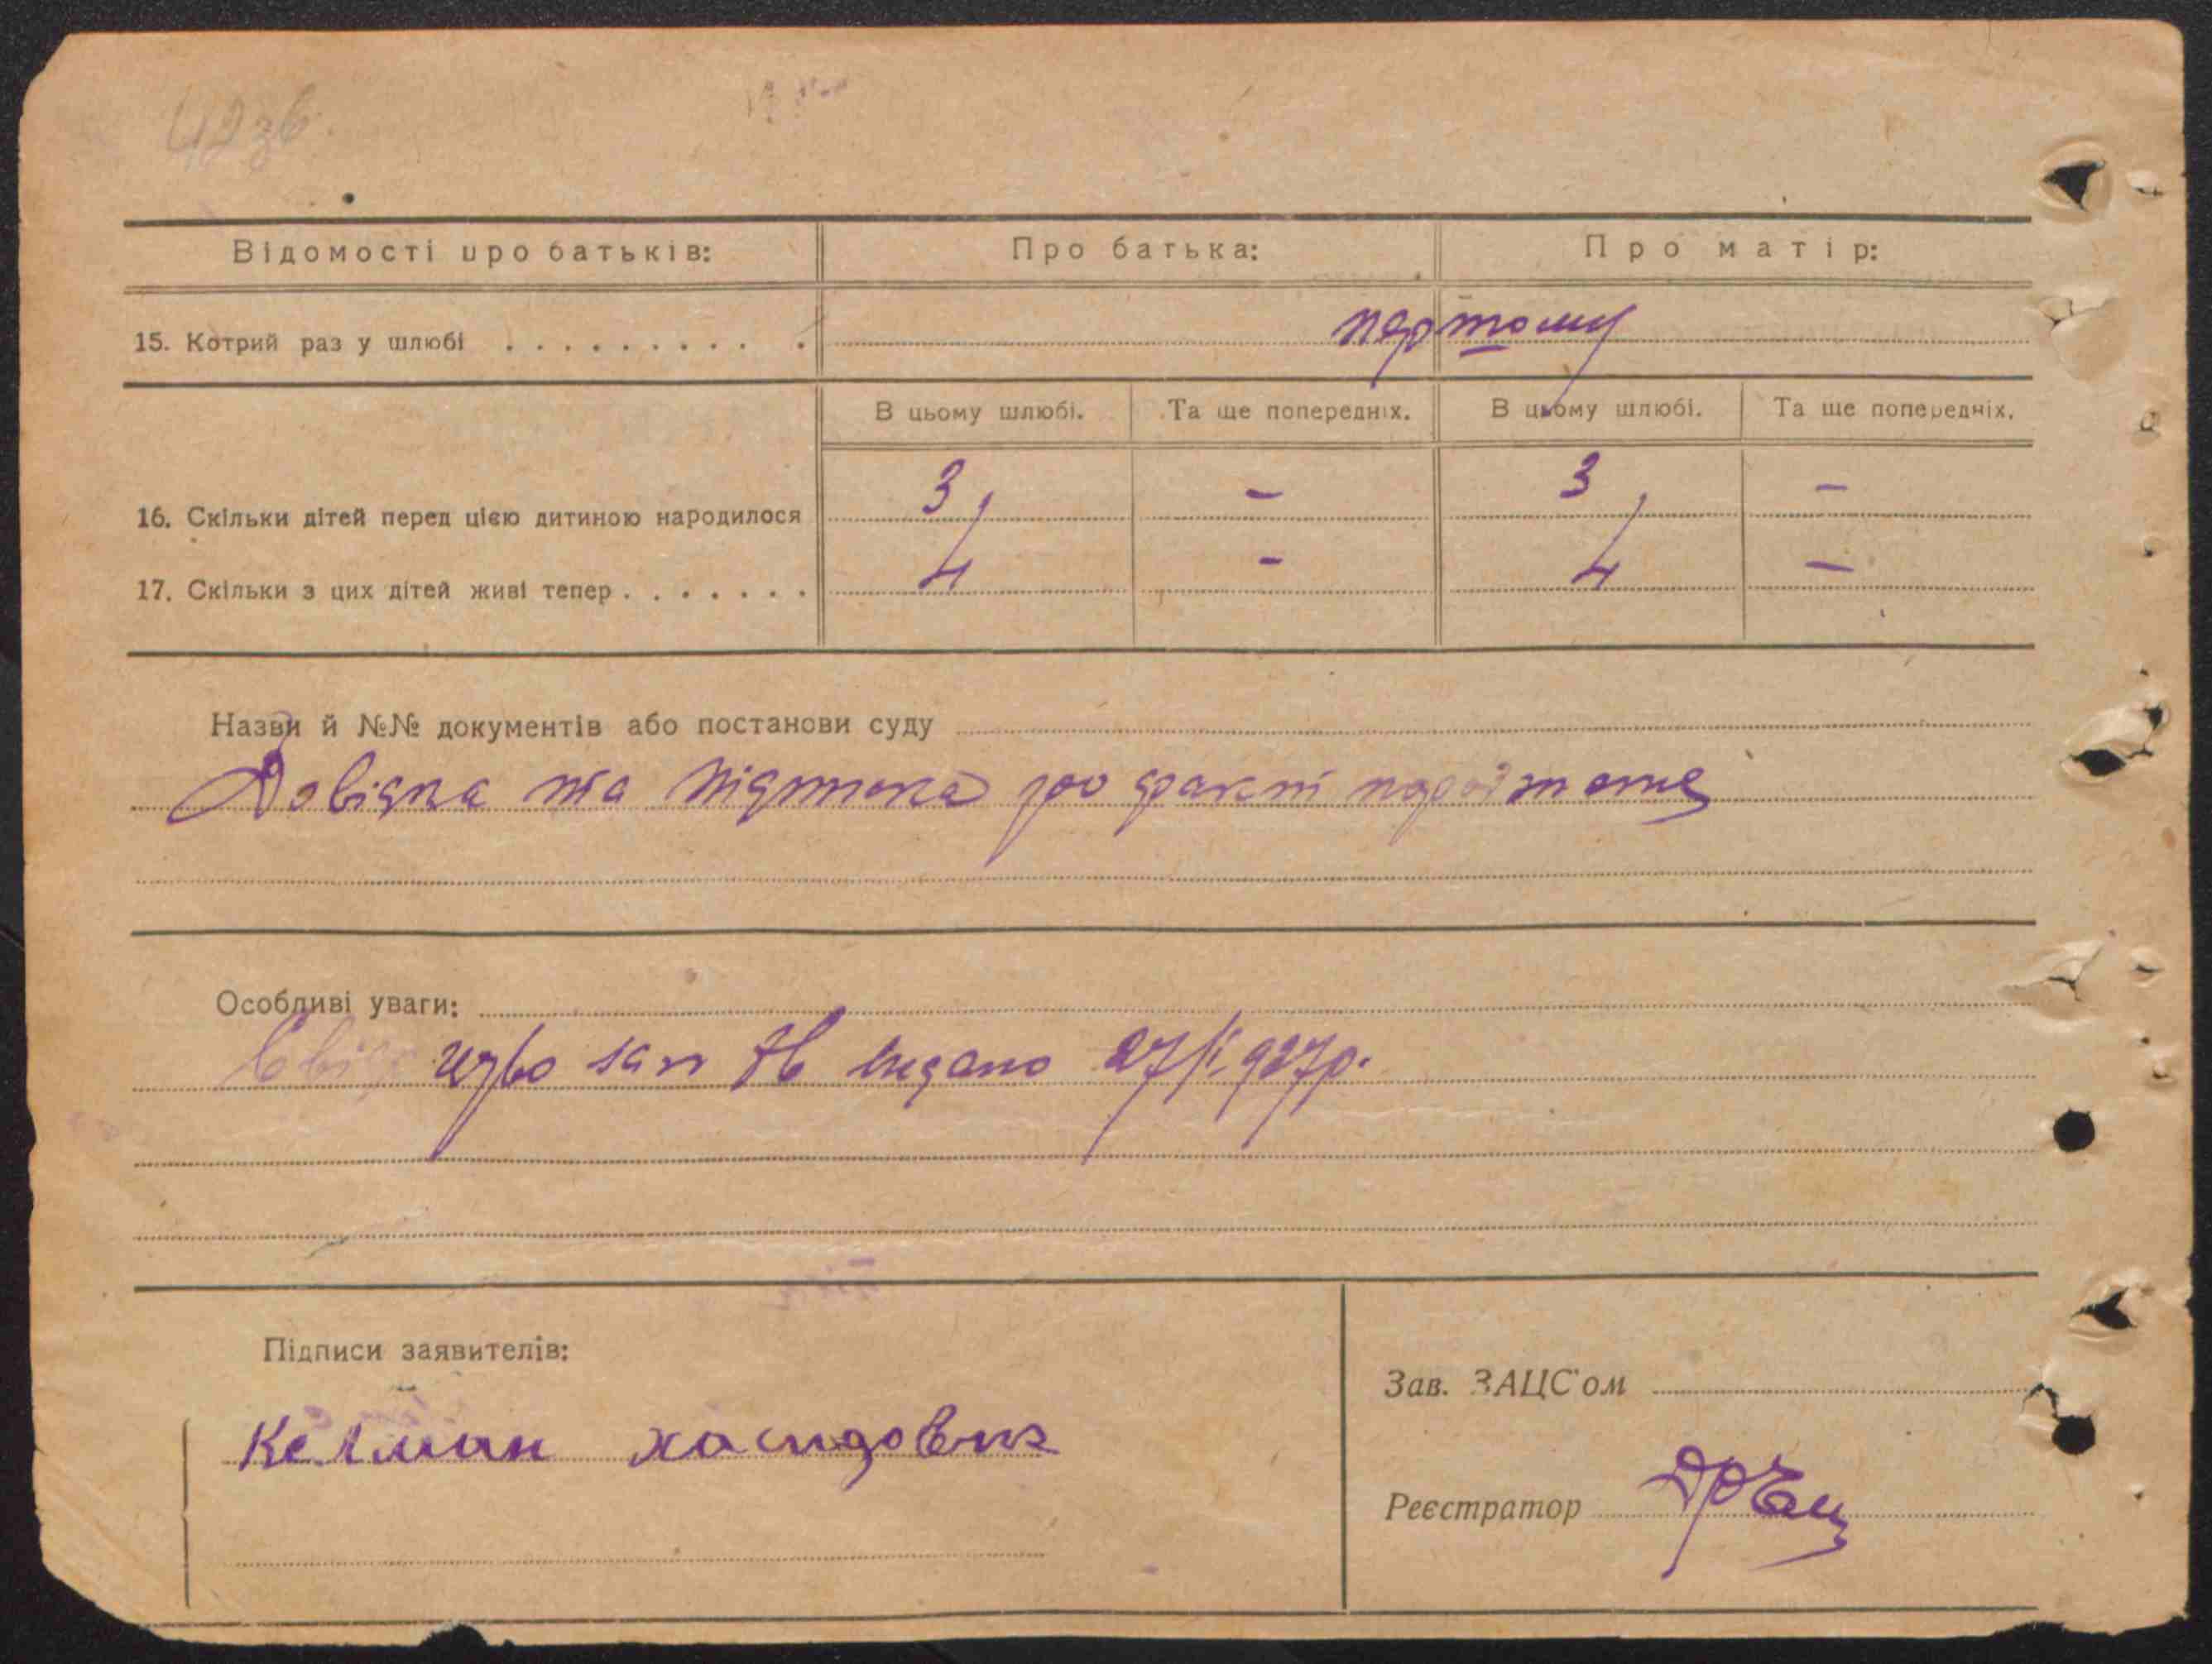 42зв
Відомості про батьків: Про батька: Про матір:
15. Котрий раз у шлюбі . . . . . . . . . . першому
В цьому шлюбі. Та ще попередніх. В цьому шлюбі. Та ще попередніх.
16. Скільки дітей перед цією дитиною народилося 3 - 3 -
17. Скільки з цих дітей живі тепер . . . . . . . 4 - 4 -
Назви й №№ документів або постанови суду
Довідка та підписка про факт
Особливі уваги:
видано 27/I 927р.
Підписи заявителів:
Келман хасидовик
Зав. ЗАЦС'ом
Реєстратор